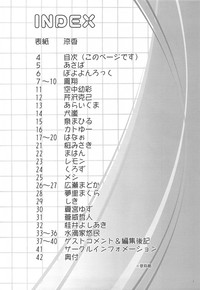 INDEX
表紙 涼香
4 目次（このページです）
5 あさば
6 ぽよよんろっく
7～10 鳳翔
11 空中幼彩
12 芹沢克己
13 あらいぐま
14 犬瀬
15 泉まひる
16 カトゆー
17～20 はなお
21 梱みさき
22 まはん
23 レモン
24 くろす
25 メシ
26～27 広瀬まどか
28 夢雅まくら
29 しき
30 員宮ゆす
31 葛城哲人
32 桂井よしあき
33～36 水滴家悠民
37～40 ゲストコメント＆編集後記
41 サークルインフォメーション
42 奥付